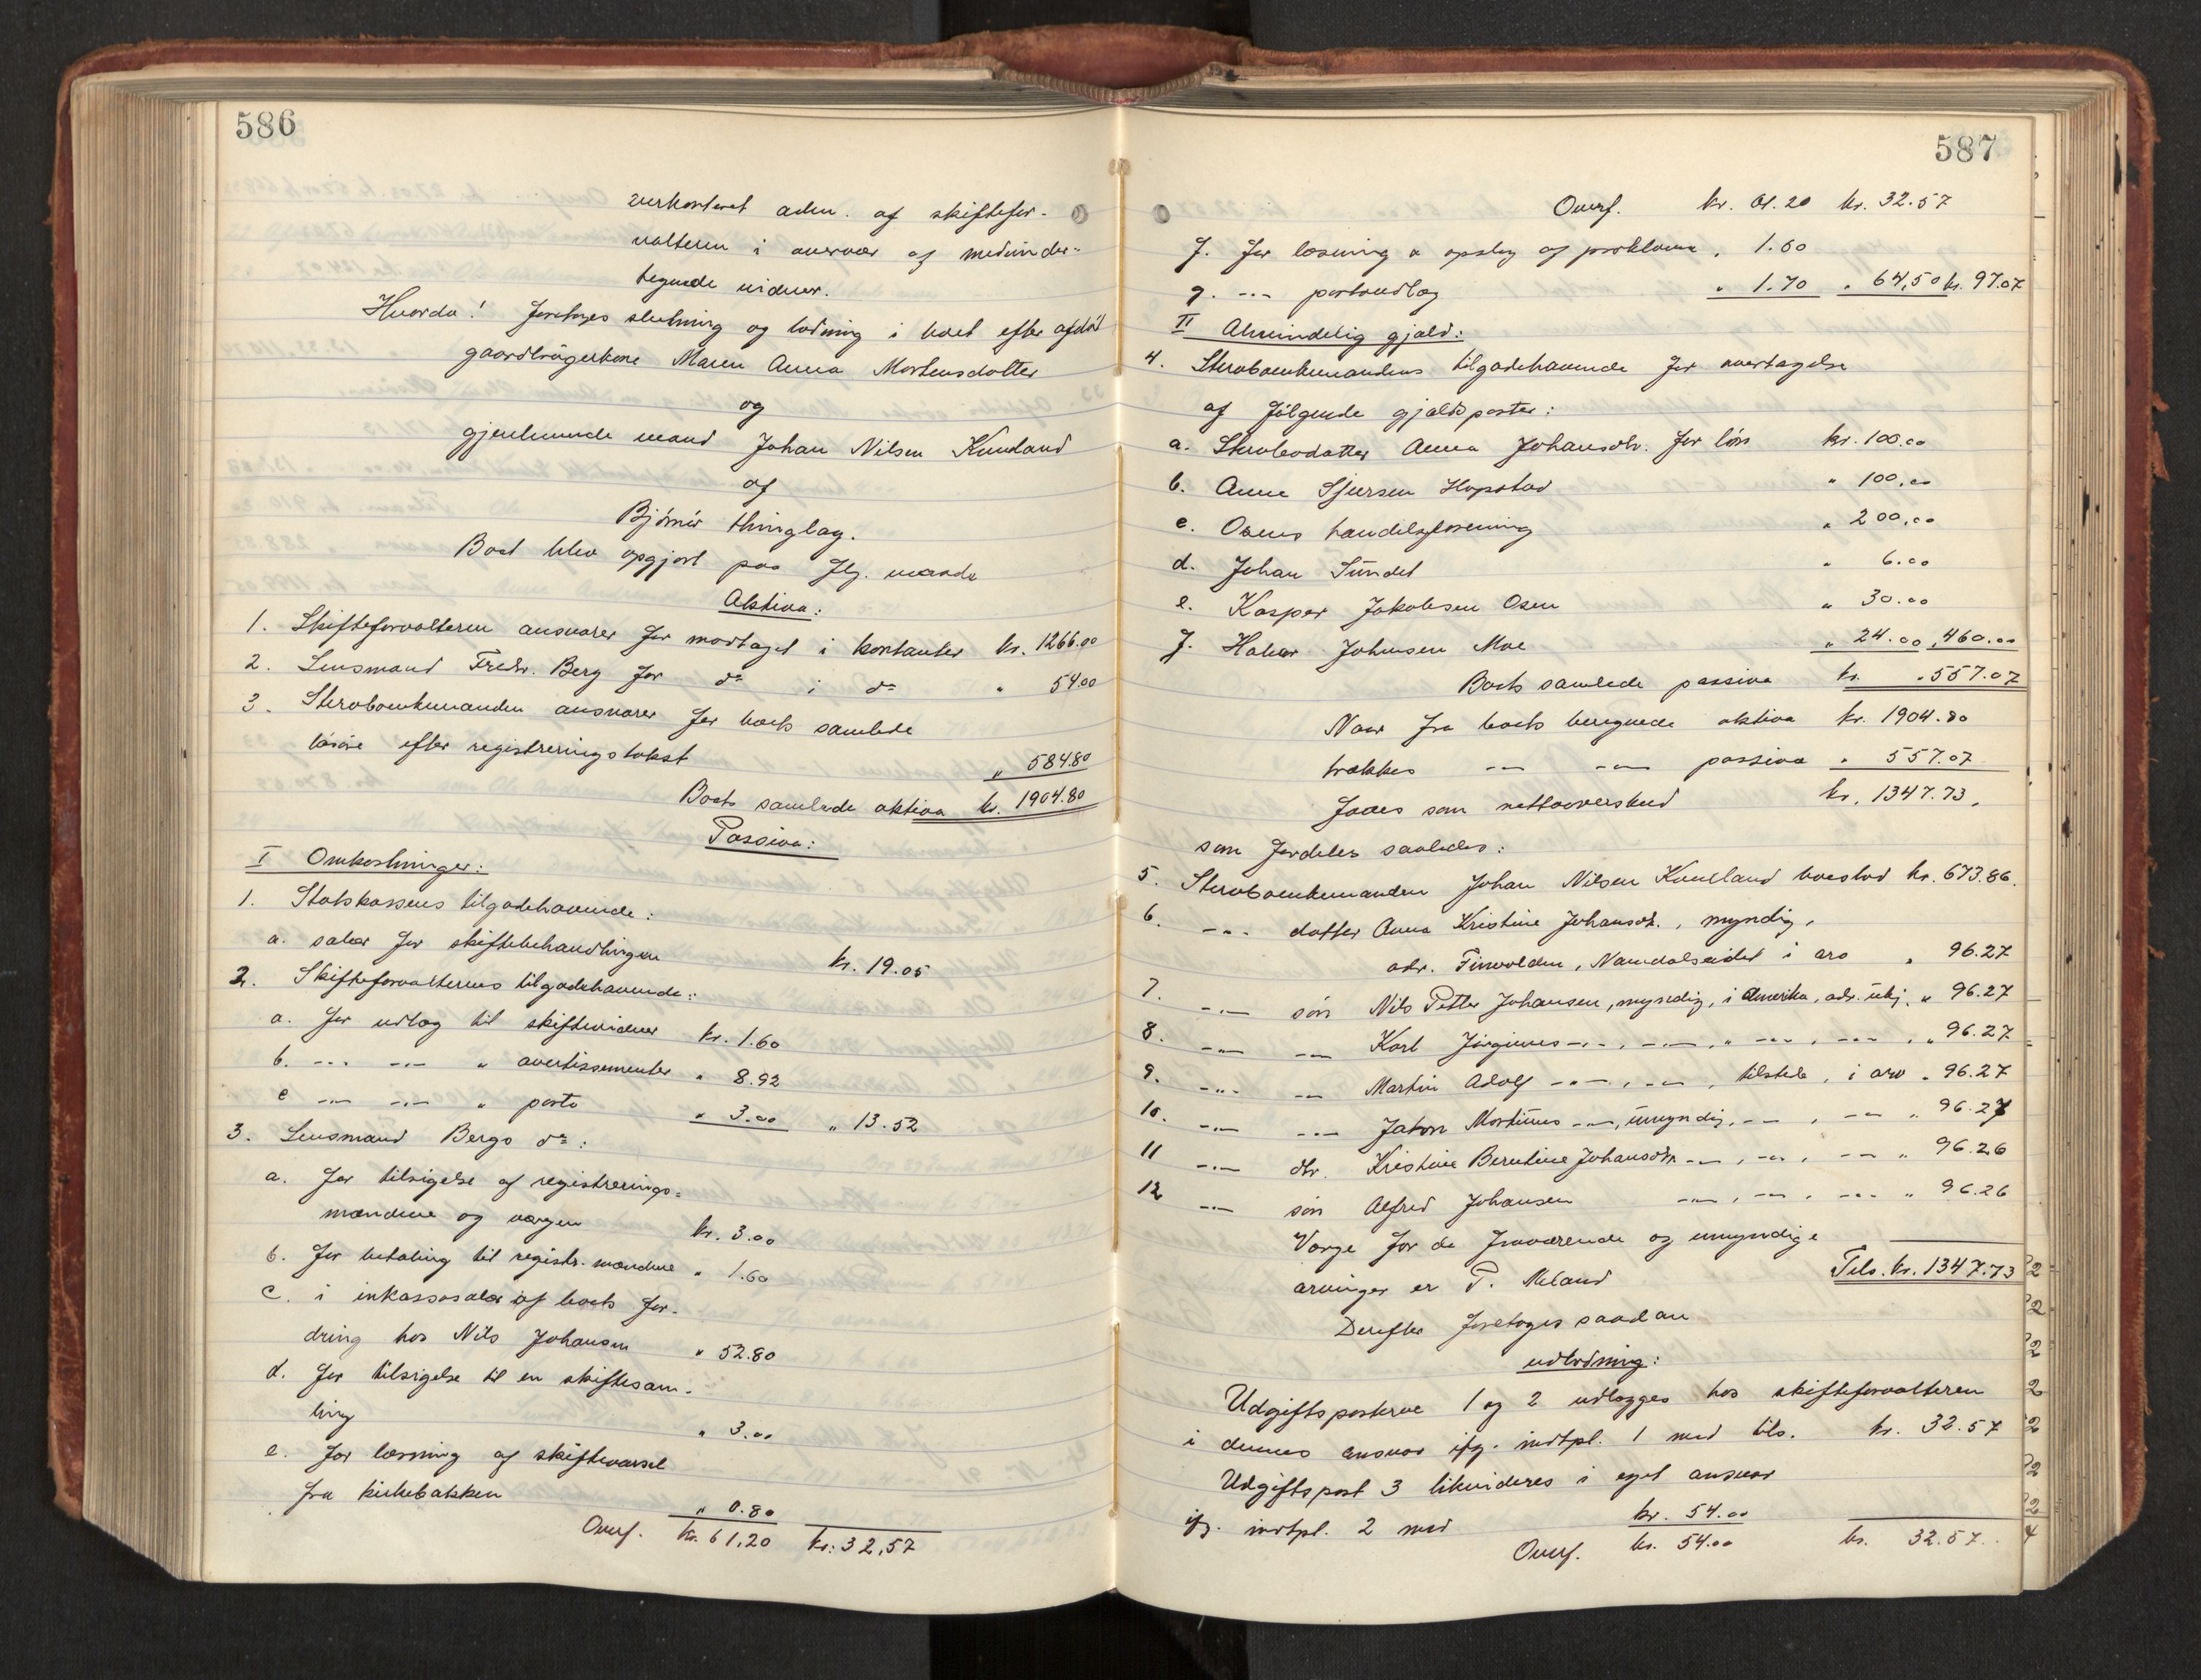 586
verkontoret adm. af skiftefor-
valteren i overvær af medunder-
tegnede vidner.
Hvorda! foretoges slutning og lodning i boet efter afdød
gaardbrugerkone Maren Anna Mortensdatter
og
gjenlevende mand Johan Nilsen Kunland
af
Bjørnør thinglag.
Boet blev opgjort paa flg. maade
Aktiva:
1. Skifteforvalteren ansvarer for modtaget i kontanter kr. 1266.00
2. Lensmand Fredr. Berg for do i do " 54.00
3. Stervboenkemanden ansvarer for boets samlede
løsøre efter registreringstakst " 584.80
Boets samlede aktiva kr. 1904.80
Passiva:
I Omkostninger:
1. Statskassens tilgodehavende:
a. salær for skiftebehandlingen kr. 19.05
2. Skifteforvalterens tilgodehavende:
a. for udlæg til skiftevidner kr. 1.60
b. -"- -"- " avertissementer " 8.92
c -"- -"- " porto " 3.00 " 13.52
3. Lensmand Bergs do:
a. for tilsigelse af registrerings-
mændene og værgen kr. 3.00
b. for betaling til registr. mændene " 1.60
c. i inkassosalær af boets for-
dring hos Nils Johansen " 52.80
d. for tilsigelse til en skiftesam-
ling " 3.00
e. for læsning af skiftevarsel
fra kirkebakken " 0.80
Overf. kr. 61,20 kr. 32,57
587
Overf. kr. 61.20 kr. 32.57
f. for læsning & opslag af proklama " 1.60
g. -"- portoudlæg " 1.70 " 64,50 kr. 97.07
II Almindelig gjæld:
4. Stervboenkemandens tilgodehavende for overtagelse
af følgende gjældsposter:
a. Stervbodatter Anna Johansdtr. for løn kr. 100.00
b. Anne Sjursen Hopstad " 100.00
c. Osens handelsforening " 200.00
d. Johan Sundet " 6.00
e. Kasper Jakobsen Osen " 30.00
f. Halvor Johnsen Moe " 24.00 " 460.00
Boets samlede passiva kr. " 557.07
Naar fra boets beregnede aktiva kr. 1904.80
trækkes -"- -"- passiva " 557.07
faaes som nettooverskud kr. 1347.73.
som fordeles saaledes:
5. Stervboenkemanden Johan Nilsen Kunland boeslod kr. 673.86.
6. -"- datter Anna Kristine Johansdt., myndig,
adr. Finvolden, Namdalseidet i arv " 96.27
7. -"- søn Nils Petter Johansen, myndig, i Amerika, adr. ubkj. " 96.27
8. -"- -"- Karl Jørginus -"-, -"-, " -"-, -"-, " 96.27
9. -"- -"- Martin Adolf -"-, -"-, tilstede, i arv " 96.27
10. -"- -"- Jakon Mortinus -"-, umyndig, -"-, -"- " 96.27
11 -"- dtr. Kristine Berntine Johansdtr. -"-, -"-, -"- " 96.26
12 -"- søn Alfred Johansen -"-, -"-, -"- " 96.26
Værge for de fraværende og umyndige
arvinger er P. Meland Tils. kr. 1347.73
Derefter foretoges saadan
udlodning:
Udgiftsposterne 1 og 2 udlægges hos skifteforvalteren
i dennes ansvar ifg. indtpl. 1 med tils. kr. 32.57
Udgiftspost 3 likvideres i eget ansvar
ifg. indtpl. 2 med kr. 54.00
Overf. kr. 54.00 kr. 32.57.